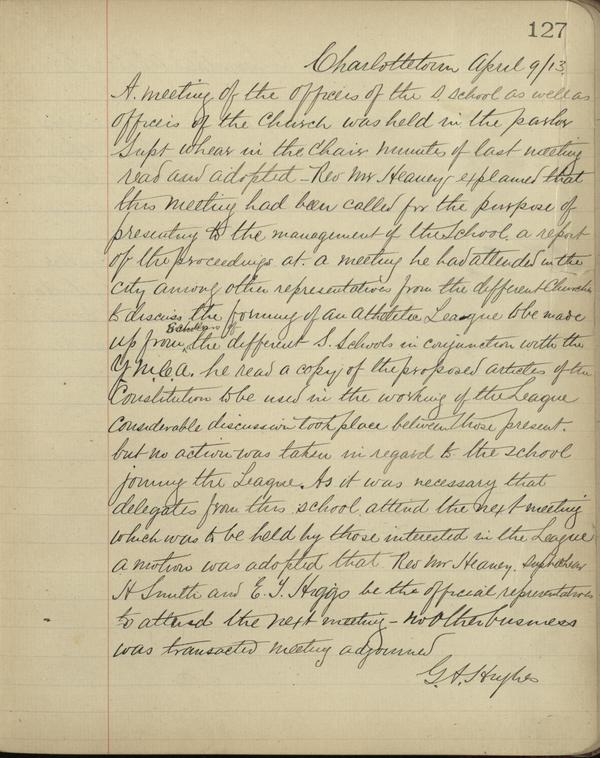 127
Charlottetown April 9/13
A. meeting of the officers of the S. School as well as
officers of the Church was held in the parlor
Supt Whear in the Chair minutes of last meeting
read and adopted - Rev Mr Heaney explained that
this meeting had been called for the purpose of
presenting to the management of the School a report
of the proceedings at a meeting he had attended in the
city among other representatives from the different Churches
to discuss the forming of an Athletic League to be made
up from the different S. Schools in conjunction with the
Y.M.C.A. he read a copy of the proposed articles of the
Constitution to be used in the working of the League
Considerable discussion took place between those present.
but no action was taken in regard to the school
joining the League. As it was necessary that
delegates from this school attend the next meeting
which was to be held by those interested in the League
a motion was adopted that Rev Mr Heaney. Supt Whear
H Smith and E. T. Higgs be the official representatives
to attend the next meeting - no other business
was transacted meeting adjourned
G. A. Hughes